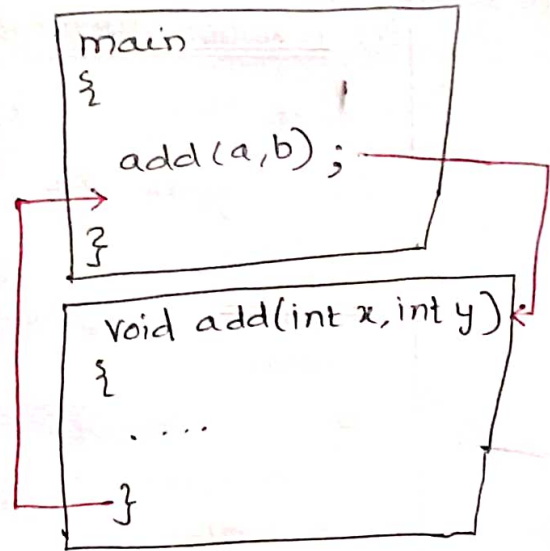 main
{
add(a,b);
}
void add(int x, int y)
{
. ....
}